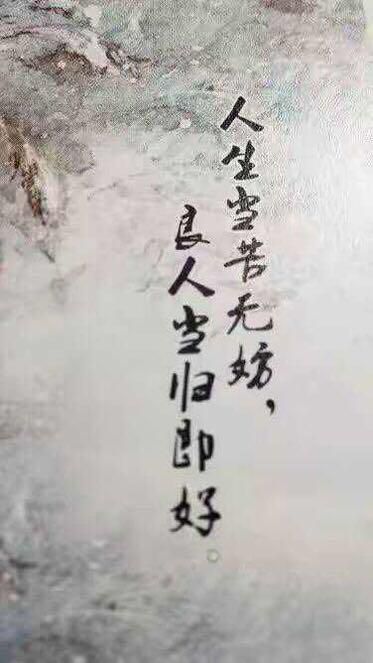 人生当苦无妨，
良人当归即好。